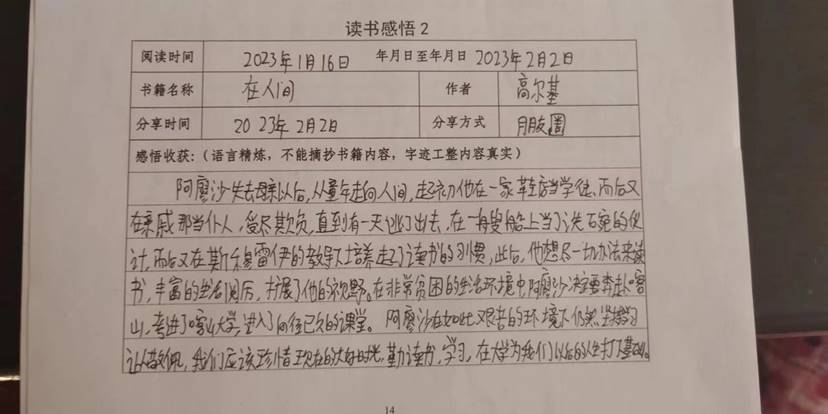 读书感悟2
阅读时间 2023年1月16日 年月日至年月日 2023年2月2日
书籍名称 在人间 作者 高尔基
分享时间 2023年2月2日 分享方式 朋友圈
感悟收获：（语言精炼，不能摘抄书籍内容，字迹工整内容真实）
阿廖沙失去母亲以后，从童年走向人间，起初他在一家鞋店当学徒，而后又
在亲戚那当仆人，受尽欺负，直到有一天逃了出去，在一艘船上当了洗碗的伙
计，而后又在斯穆雷伊的教导下培养起了读书的习惯，此后，他想尽一切办法来读
书，丰富的生活阅历，扩展了他的视野。在非常贫困的生活环境中阿廖沙决定要奔赴喀
山，考进了喀山大学，进入了向往已久的课堂。阿廖沙在如此艰苦的环境下仍然坚持学习
让人敬佩，我们应该珍惜现在的大好时光，勤读书，学习，在大学为我们以后的人生打下基础。
14